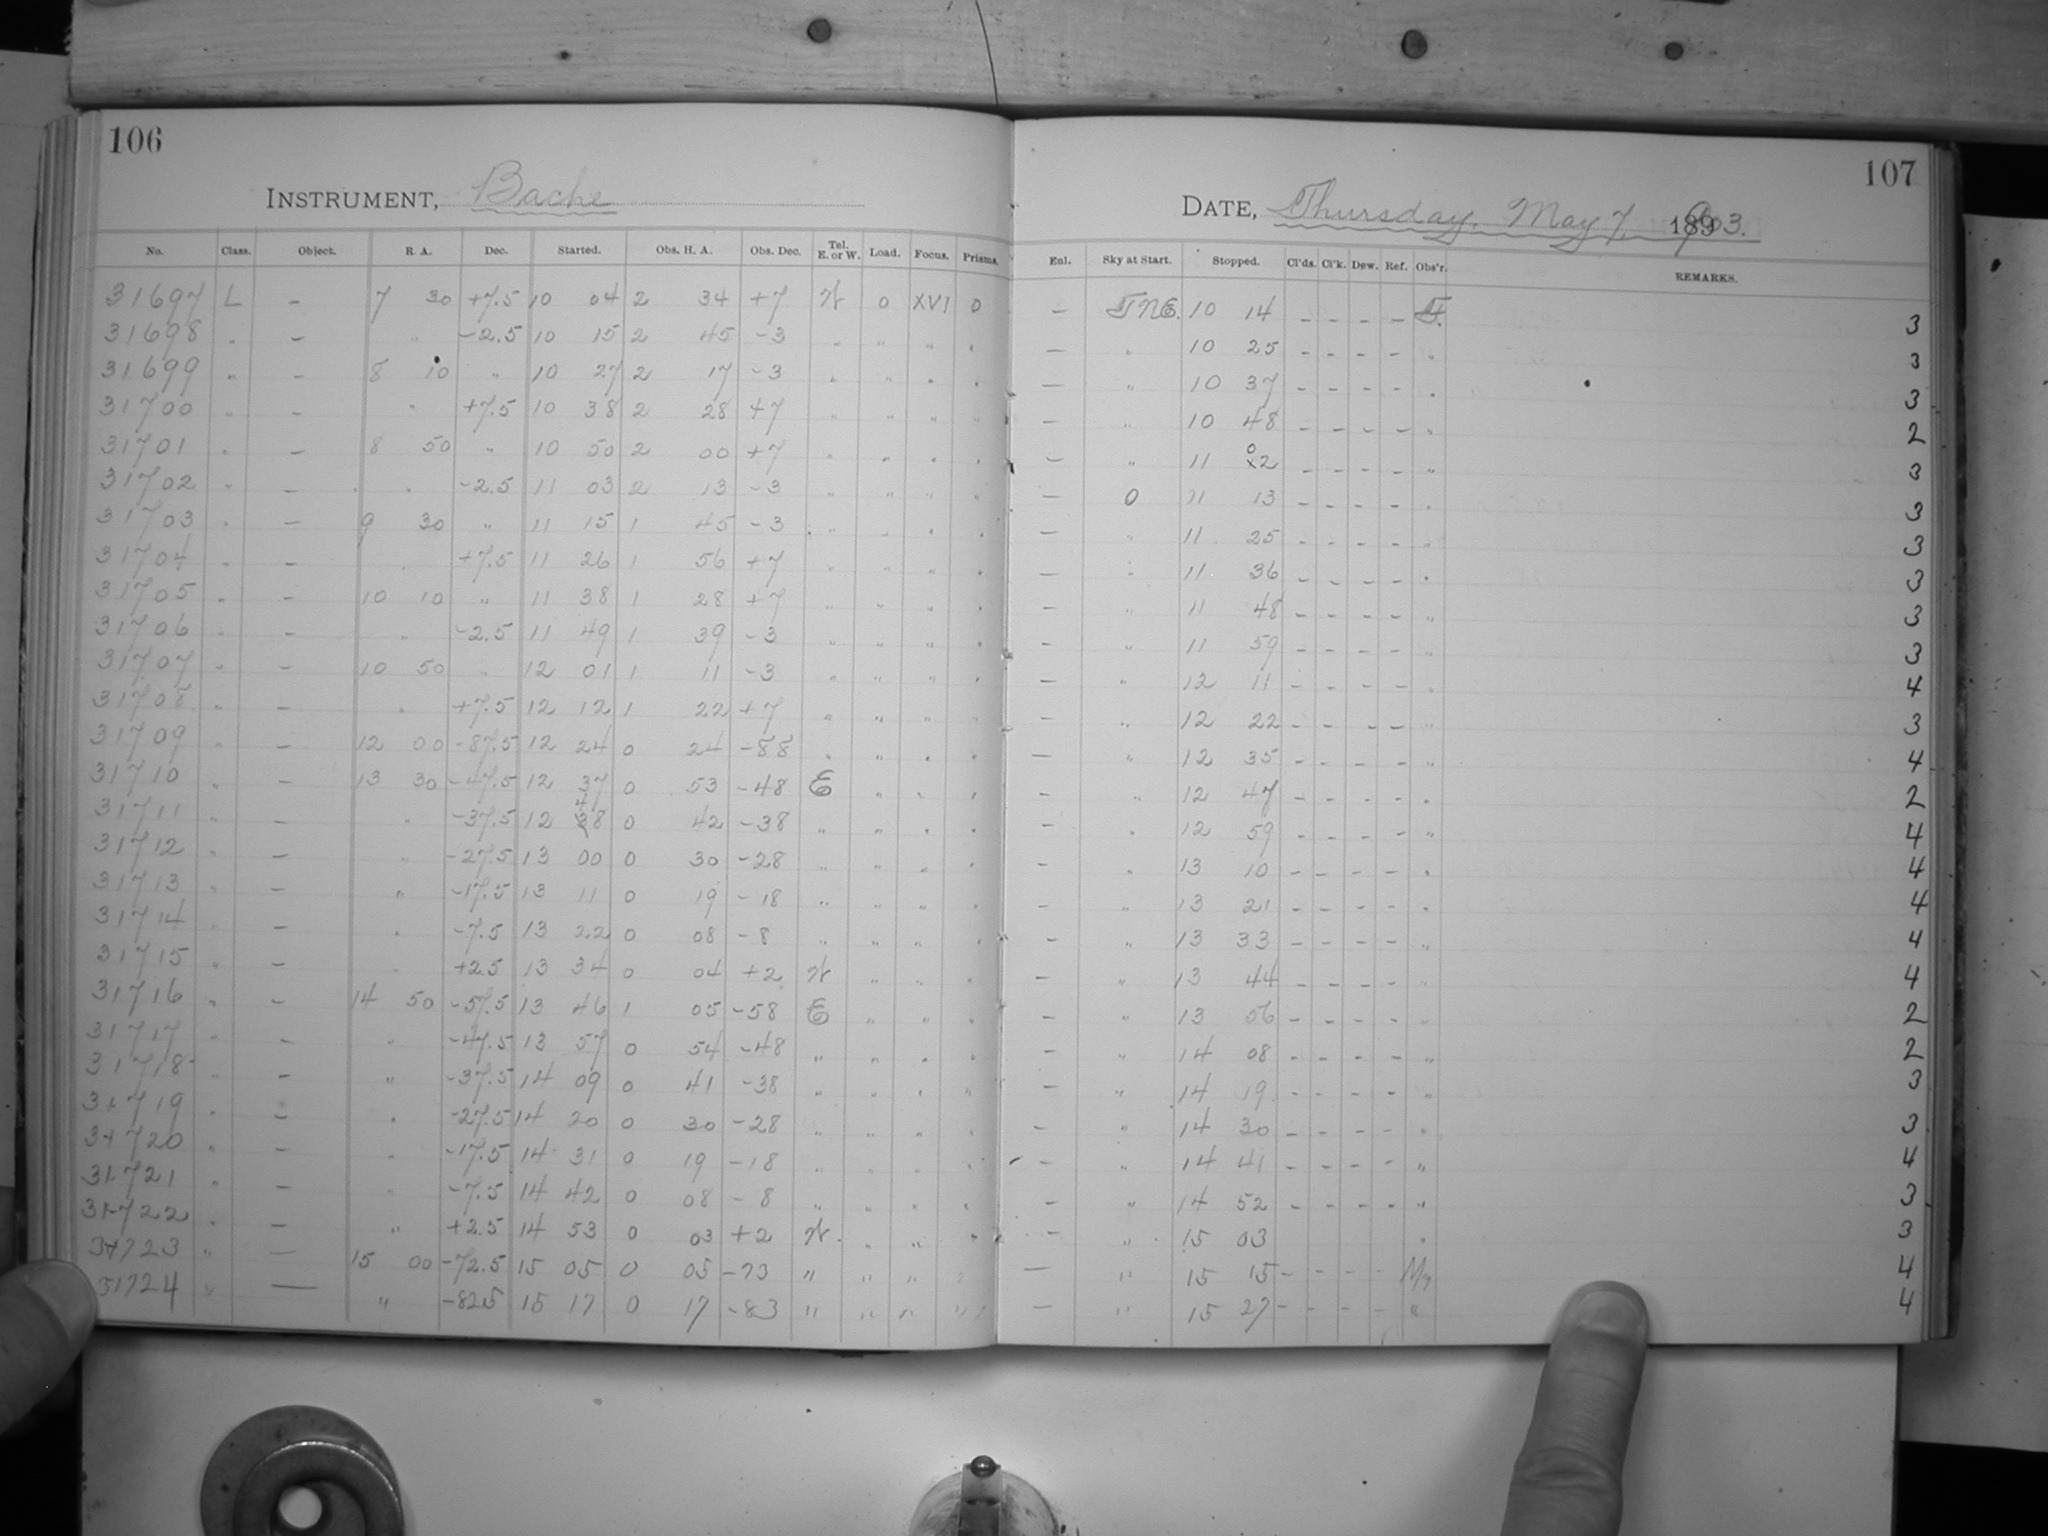 106
107
INSTRUMENT, Bache
DATE, Thursday, May 7, 1903.
No. Class. Object. R. A. Dec. Started. Obs. H. A. Obs. Dec. Tel. E. or W. Load. Focus. Prisms. Enl. Sky at Start. Stopped. Cl'ds. Cl'k. Dew. Ref. Obs'r. REMARKS.
31697 L – 7 30 +7.5 10 04 2 34 +7 W 0 XVI 0 – 10 14 – – – – 3
31698 " – " -2.5 10 15 2 45 -3 " " " " – " 10 25 – – – – " 3
31699 " – 8 10 " 10 27 2 17 -3 " " " " – " 10 37 – – – – " 3
31700 " – " +7.5 10 38 2 28 +7 " " " " – " 10 48 – – – – " 2
31701 " – 8 50 " 10 50 2 00 +7 " " " " – " 11 02 – – – – " 3
31702 " – " -2.5 11 03 2 13 -3 " " " " – 0 11 13 – – – – " 3
31703 " – 9 30 " 11 15 1 45 -3 " " " " – " 11 25 – – – – " 3
31704 " – " +7.5 11 26 1 56 +7 " " " " – " 11 36 – – – – " 3
31705 " – 10 10 " 11 38 1 28 +7 " " " " – " 11 48 – – – – " 3
31706 " – " -2.5 11 49 1 39 -3 " " " " – " 11 59 – – – – " 3
31707 " – 10 50 " 12 01 1 11 -3 " " " " – " 12 11 – – – – " 4
31708 " – " +7.5 12 12 1 22 +7 " " " " – " 12 22 – – – – " 3
31709 " – 12 00 -87.5 12 24 0 24 -88 " " " " – " 12 35 – – – – " 4
31710 " – 13 30 -47.5 12 37 0 53 -48 E " " " – " 12 47 – – – – " 2
31711 " – " -37.5 12 48 0 42 -38 " " " " – " 12 59 – – – – " 4
31712 " – " -27.5 13 00 0 30 -28 " " " " – " 13 10 – – – – " 4
31713 " – " -17.5 13 11 0 19 -18 " " " " – " 13 21 – – – – " 4
31714 " – " -7.5 13 22 0 08 -8 " " " " – " 13 33 – – – – " 4
31715 " – " +2.5 13 34 0 04 +2 W " " " – " 13 44 – – – – " 4
31716 " – 14 50 -57.5 13 46 1 05 -58 E " " " – " 13 56 – – – – " 2
31717 " – " -47.5 13 57 0 54 -48 " " " " – " 14 08 – – – – " 2
31718 " – " -37.5 14 09 0 41 -38 " " " " – " 14 19 – – – – " 3
31719 " – " -27.5 14 20 0 30 -28 " " " " – " 14 30 – – – – " 3
31720 " – " -17.5 14 31 0 19 -18 " " " " – " 14 41 – – – – " 4
31721 " – " -7.5 14 42 0 08 -8 " " " " – " 14 52 – – – – " 3
31722 " – " +2.5 14 53 0 03 +2 W " " " – " 15 03 " 3
31723 " – 15 00 -72.5 15 05 0 05 -73 " " " " – " 15 15 – – – – 4
31724 " – " -82.5 15 17 0 17 -83 " " " " – " 15 27 – – – – " 4